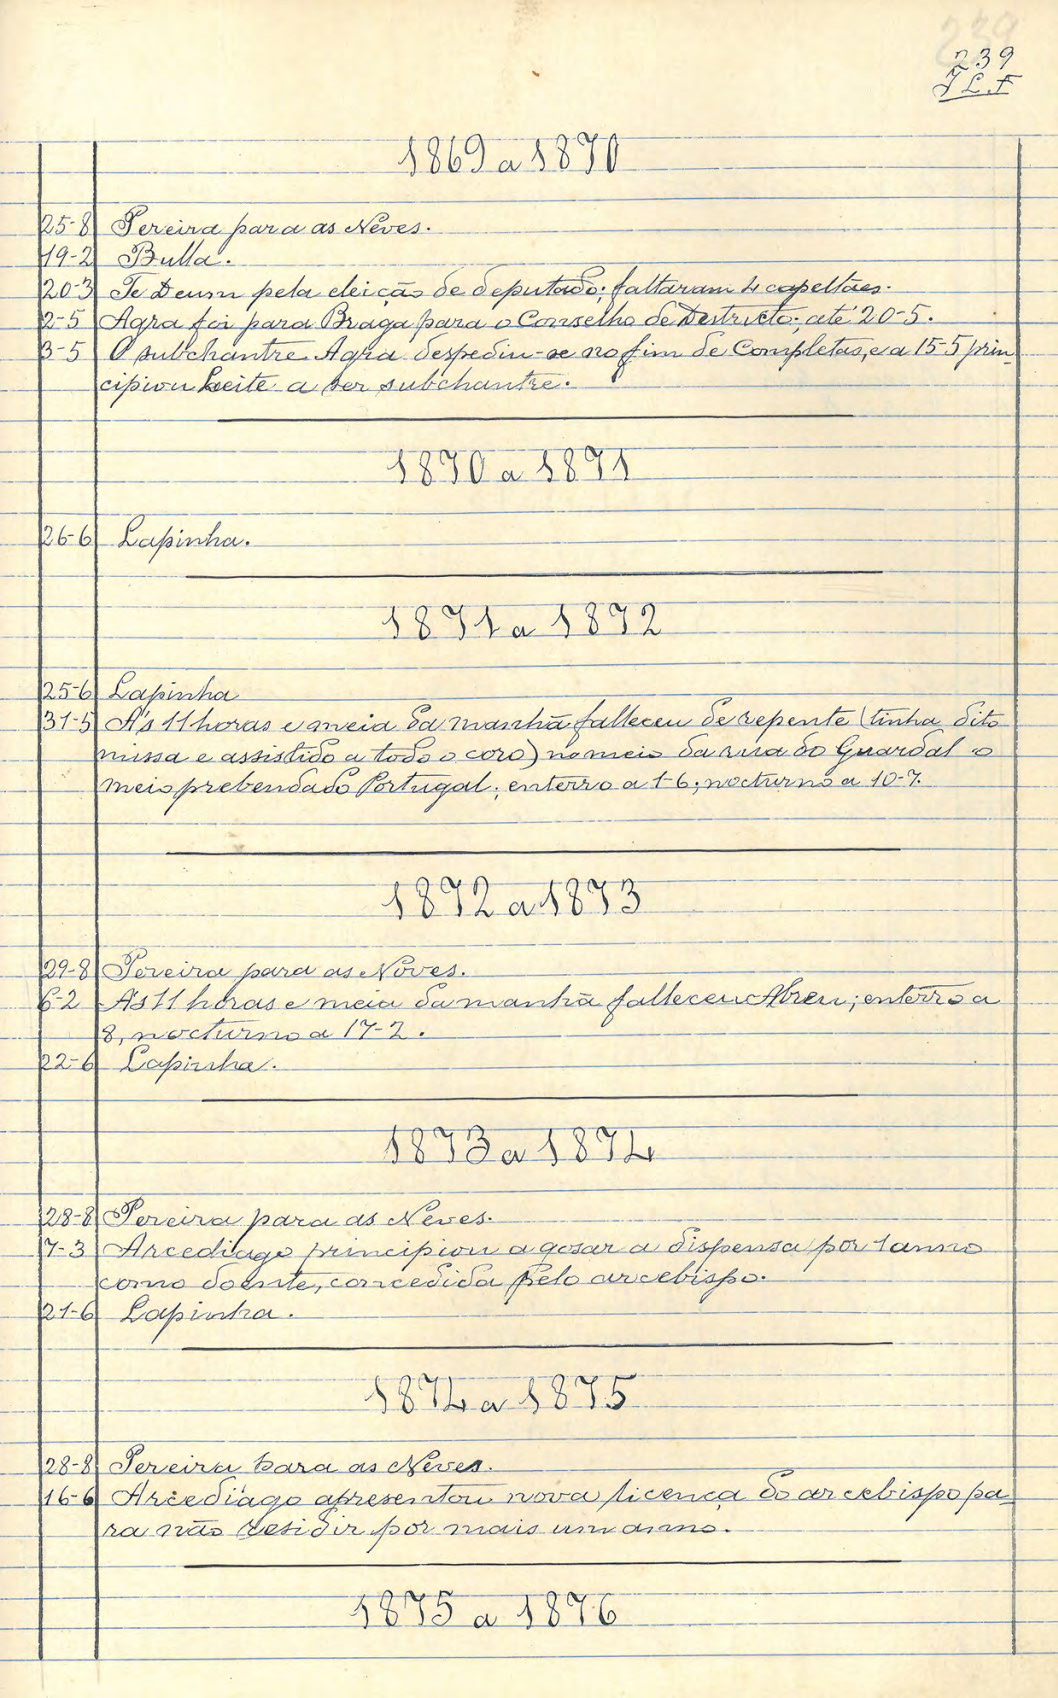 239
J L. F
1869 a 1870
25-8 Pereira para as Neves.
19-2 Bulla.
20-3 Te Deum pela eleição de deputado; faltaram 4 capellães.
2-5 Agra foi para Braga para o Conselho de Destricto; até 20-5.
3-5 O subchantre Agra despediu-se no fim de Completas, e a 15-5 prin-
cipiou Leite a ser subchantre.
1870 a 1871
26-6 Lapinha.
1871 a 1872
25-6 Lapinha
31-5 A's 11 horas e meia da manhã falleceu de repente (tinha dito
missa e assistido a todo o coro) no meio da rua do Guardal o
meio prebendado Portugal; enterro a 1-6; nocturno a 10-7.
1872 a 1873
29-8 Pereira para as Neves.
6-2 A's 11 horas e meia da manhã falleceu Abreu; enterro a
8, nocturno a 17-2.
22-6 Lapinha.
1873 a 1874
28-8 Pereira para as Neves.
7-3 Arcediago principiou a gosar a dispensa por 1 anno
como doente, concedida pelo arcebispo.
21-6 Lapinha.
1874 a 1875
28-8 Pereira para as Neves.
16-6 Arcediago apresentou nova licença do arcebispo pa-
ra não residir por mais um anno.
1875 a 1876